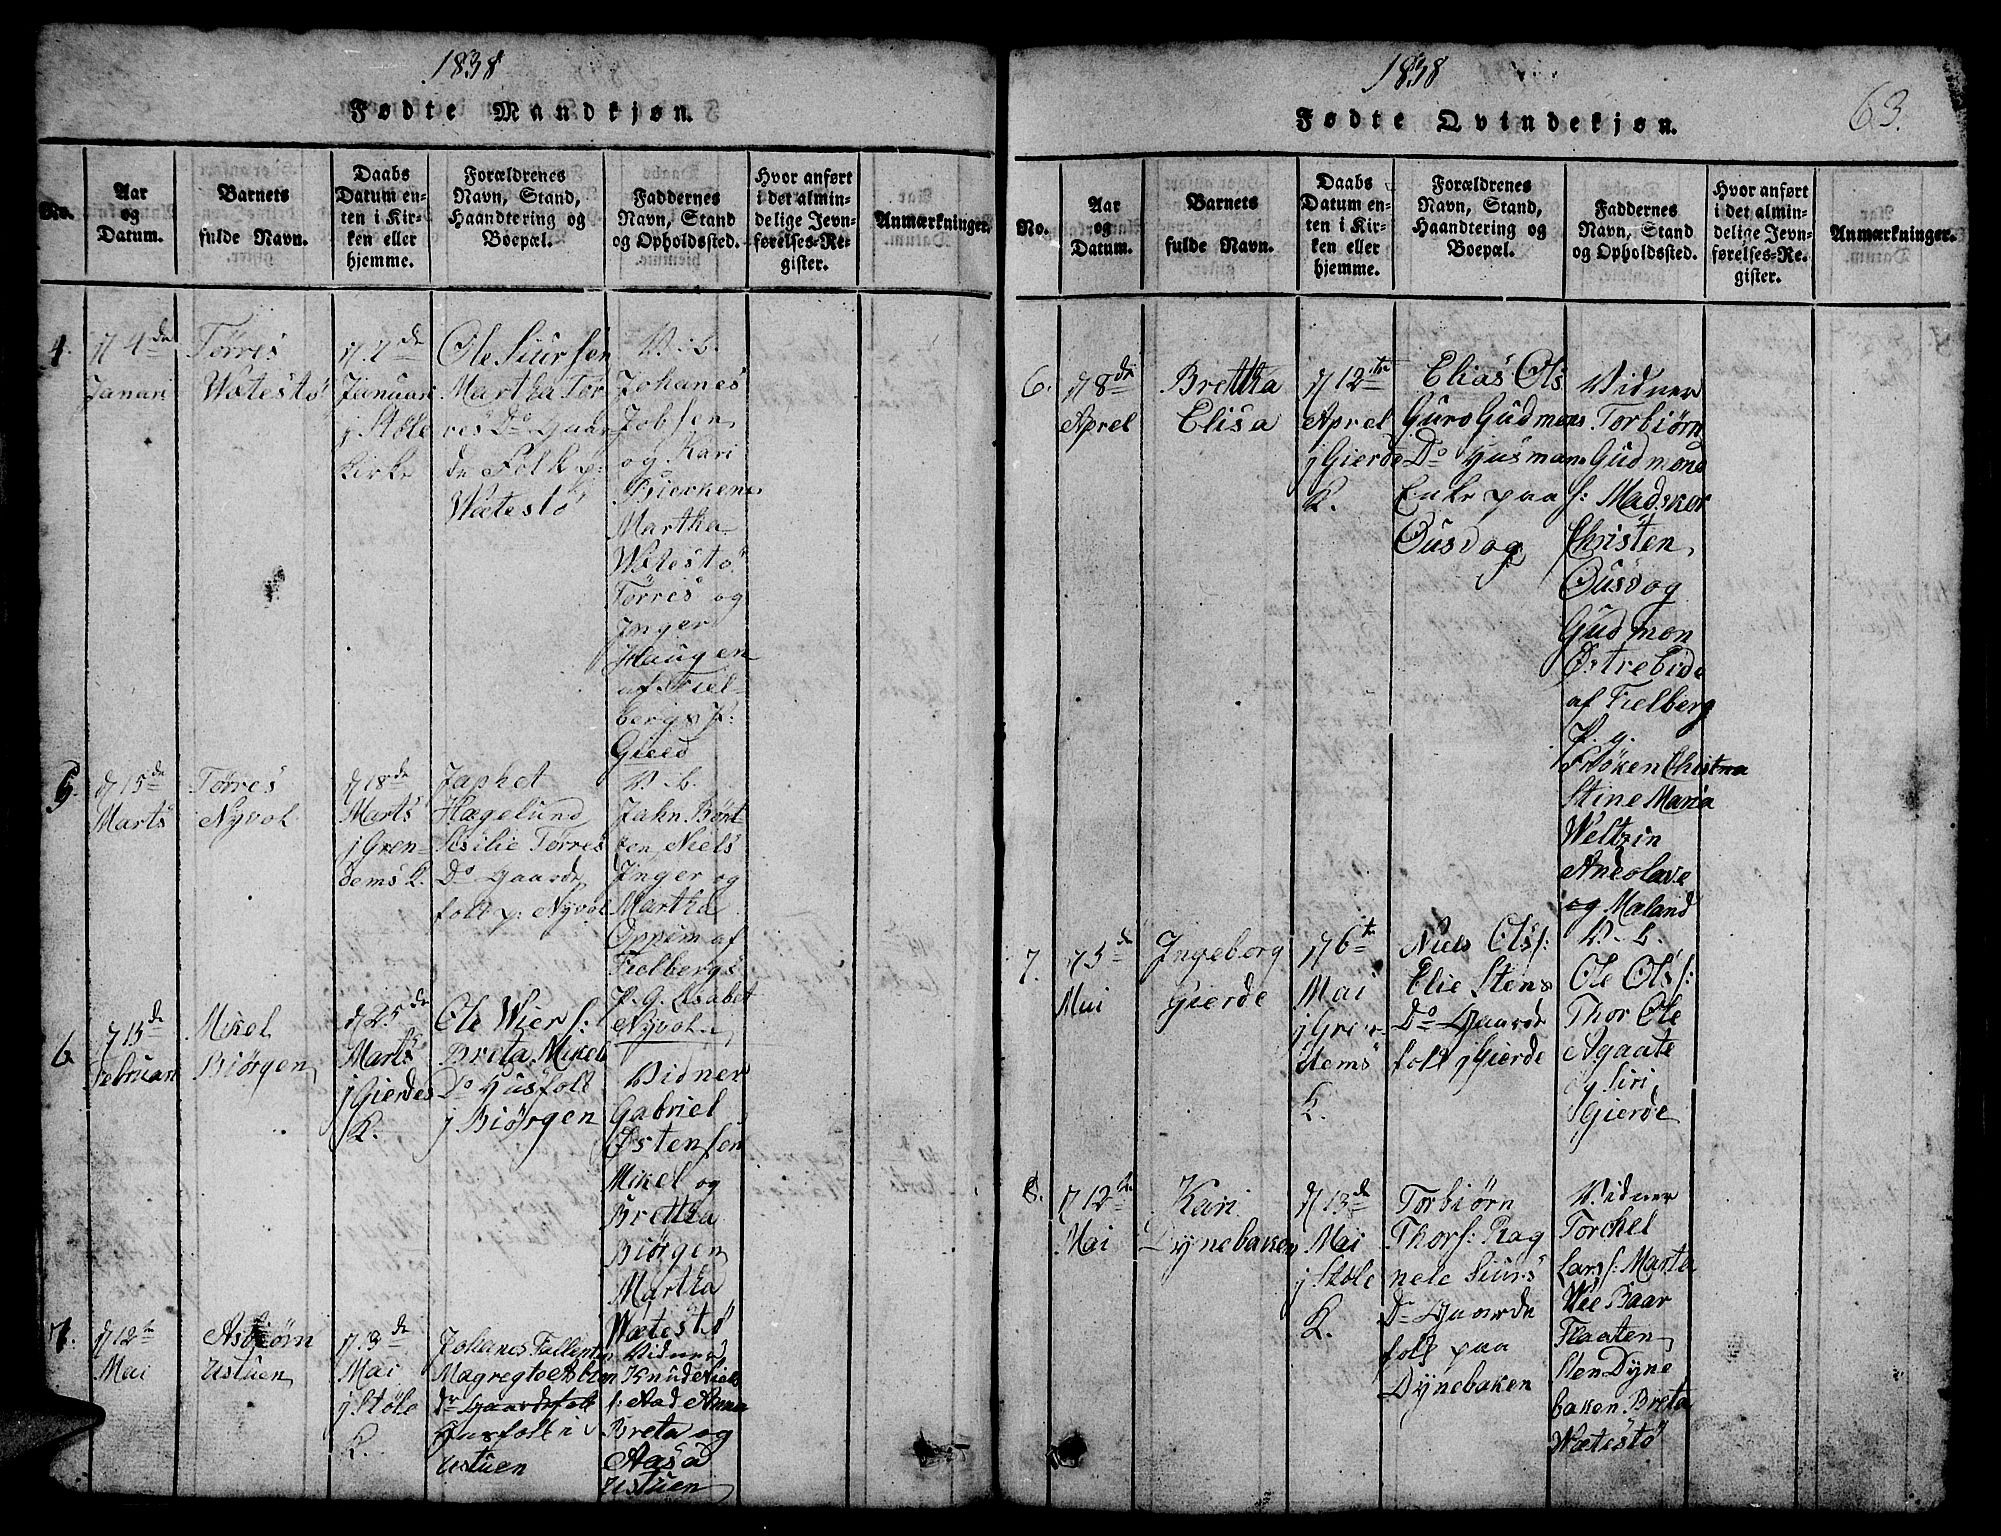 1838
Fødte Mandkjøn.
No.
Aar
og
Datum.
Barnets
fulde Navn.
Daabs
Datum en-
ten i Kir-
ken eller
hjemme.
Forældrenes
Navn, Stand,
Haandtering og
Boepæl.
Faddernes
Navn, Stand
og Opholdssted.
Hvor anført
i det almin-
delige Jevn-
førelses-Re-
gister.
Anmærkninger.
4.
d 4de
Januari
Tørres
Wætestø
d 7de
Januari
j Støle
Kirke
Ole Siursen
Martha Tor
res Do Gaar
de Folk p:
Wætestø
V. b.
Johanes
Jobsen
og Kari
Bierkenes
Martha
Wætestø
Tørres og
Jnger
Haugen
af Fiel-
bergs P:
Gield
5.
d 15de
Marts
Tørres
Nyvol
d 18de
Marts
j Gren-
dems K.
Japhet
Hægelund
Sisilie Tørres
Do Gaarde
folk p: Nyvol
V. b.
Jahn Bønt
Niels
Jnger og
Martha
Oppem af
Fielbergs
P. G. Lisabet
Nyvol
6
d 15de
Februari
Mikel
Biørgen
d 25de
Marts
j Gierdes
K.
Ole Wiers:
Breta Mikel
Do Husfolk
j Biørgen
Vidner
Gabriel
Østensen
Mikel og
Brettha
Biørgen
Martha
Wætestø
7.
d 12te
Mai
Asbiørn
Ustuen
d 3de
Mai
j Støle
K.
Johanes Tallentin
Do Gaardsfolk
Husfolk i
Ustuen
Vidner
Knud Niels
s: Aad Anna
Breta og
Aasa
Ustuen
1838
63.
Fødte Qvindekjøn.
No.
Aar
og
Datum.
Barnets
fulde Navn.
Daabs
Datum en-
ten i Kir-
ken eller
hjemme.
Forældrenes
Navn, Stand,
Haandtering og
Boepæl.
Faddernes
Navn, Stand
og Opholdssted.
Hvor anført
i det almin-
delige Jevn-
førelses-Re-
gister.
Anmærkninger.
6.
d 8de
Aprel
Brettha
Elisa
d 12te
Aprel
j Gierde
K.
Elias Ols
Guro Gudmons
Do Husman
Enke paa
Øusvog
Vidner
Torbiørn
Gudmons
s: Madsker
Christen
Øusvog
Gudmon
Østrebide
af Fielberg
P. g.
Frøken Christna
Stine Maria
Weltzin
Aneolave
og Maland
7.
d 5de
Mai
Ingeborg
Gierde
d 6te
Mai
j Gren-
dems
K.
Niels Ols:
Elie Stens
Do Gaarde
folk j Gierde
V. b.
Ole Ols:
Thor Ole
Agaate
og Siri
Gierde
8.
d 12te
Mai
Kari
Dynebaken
d 13de
Mai
j Støle
K.
Torbiørn
Thors: Rag
nele Siurs
Do Gaarde
folk paa
Dynebaken
Vidner
Torchel
Lars: Marta
Wee Baar
Flaaten
Sten Dyne
baken Breta
Wætestø